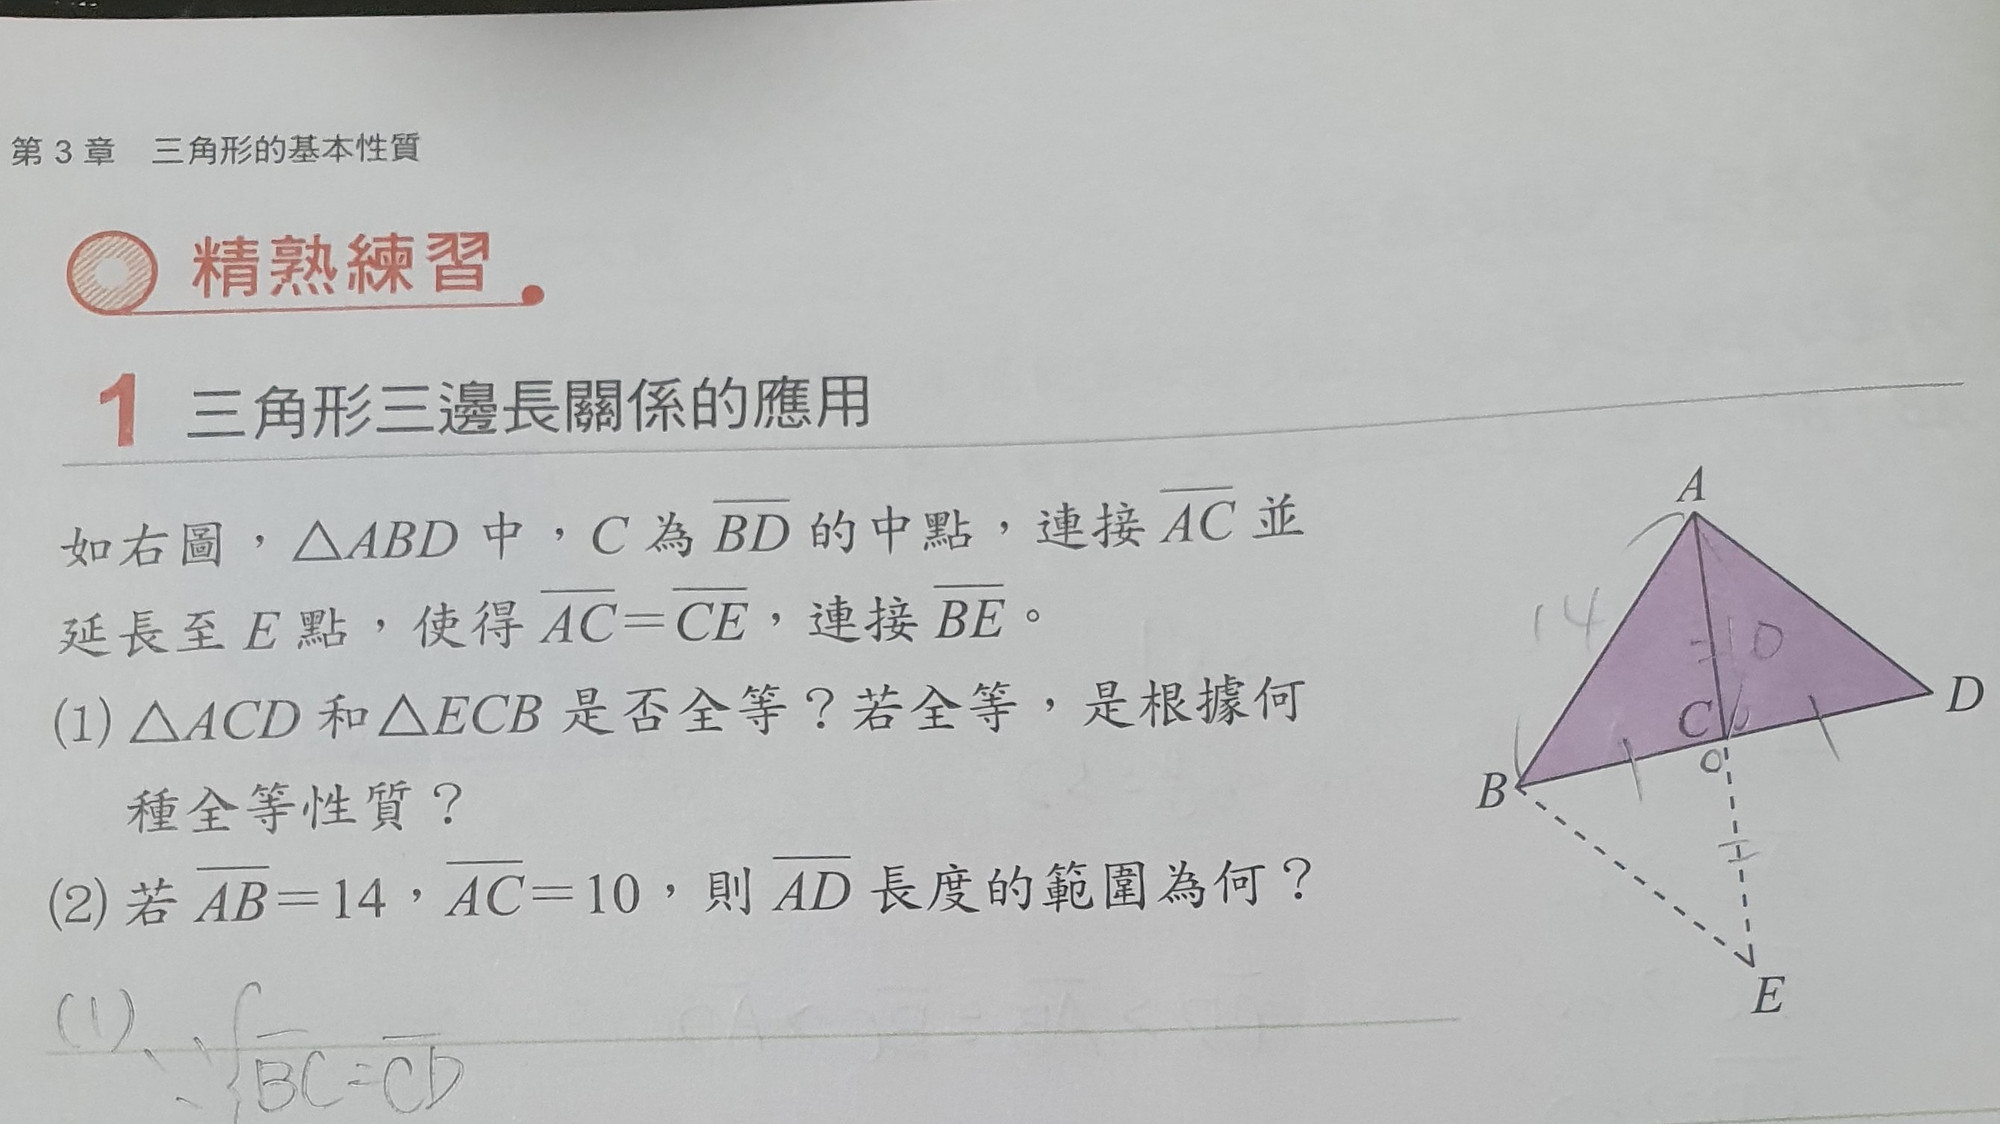 第 3 章　三角形的基本性質
精熟練習
1 三角形三邊長關係的應用
如右圖，△ABD 中，C 為 BD 的中點，連接 AC 並
延長至 E 點，使得 AC=CE，連接 BE。
(1) △ACD 和△ECB 是否全等？若全等，是根據何
種全等性質？
(2) 若 AB=14，AC=10，則 AD 長度的範圍為何？
A
14
10
C
D
B
E
(1)
BC=CD